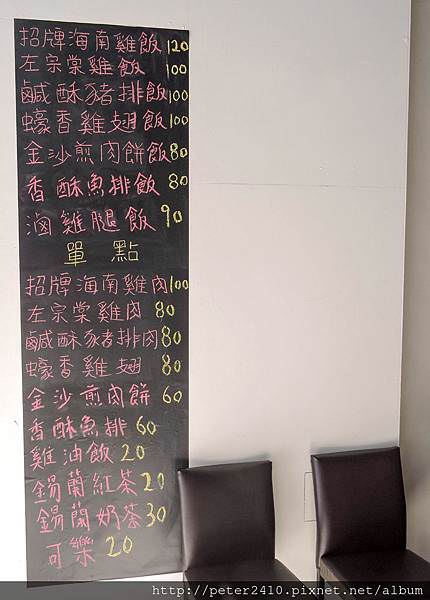 招牌海南雞飯 120
左宗棠雞飯 100
鹹酥豬排飯 100
蠔香雞翅飯 100
金沙煎肉餅飯 80
香酥魚排飯 80
滷雞腿飯 90
單點
招牌海南雞肉 100
左宗棠雞肉 80
鹹酥豬排肉 80
蠔香雞翅 80
金沙煎肉餅 60
香酥魚排 60
雞油飯 20
錫蘭紅茶 20
錫蘭奶茶 30
可樂 20
http://peter2410.pixnet.net/album